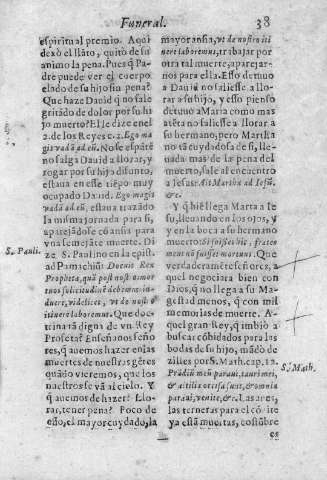 Funeral. 38
espiritual premio. Aqui
dexò el llãto, quitò de su
animo la pena. Pues q̃ Pa-
dre puede ver el cuerpo
elado de su hijo sin pena?
Que haze Dauid q̃ no sale
gritãdo de dolor por su hi
jo muerto? El le dize en el
2. de los Reyes c. 2. Ego ma
gis vadã ad eũ. No se espãte
no salga Dauid a llorar, y
rogar por su hijo difunto,
estaua en esse tiẽpo muy
ocupado Dauid. Ego magis
vadã ad eũ, estaua trazãdo
la misma jornada para si,
aparejãdose cõ ansia para
vna semejãte muerte. Di
ze S. Paulino en la epist.
ad Pamachiũ: Docuit Rex
Propheta, quã post nostr amor
tuos solicitudinẽ debeamus in
duere, videlicet, vt de nostro
itinere laboremus. Que doc-
trina tã digna de vn Rey
Profeta? Enseñanos señores
q̃ auemos hazer en las
muertes de nuestras gẽtes
quãdo vieremos, que los
nuestros se vã al cielo. Y
q̃ auemos de hazer? Llo-
rar, tener pena? Poco de
esso, el mayor cuydado, la
S. Pauli.
mayor ansia, vt de nostro iti
nere laboremus, trabajar por
otra tal muerte, aparejar-
nos para ella. Esso detuuo
a Dauid no saliesse a llo-
rar a su hijo, y esso pienso
detuuo a Maria como mas
atẽta no saliesse a llorar a
su hermano, pero Martha
no tã cuydadosa de si, lle-
uada mas de la pena del
muerto, sale al encuentro
a Iesus: Ait Martha ad Iesũ,
&c.
Y q̃ hiẽ llega Marta a Ie
su, lleuando en los ojos, y
y en la boca a su hermano
muerto: Si fuisses hic, frater
meus nõ fuisset mortuus. Que
verdaderamẽte señores, a
quel negociara bien con
Dios, q̃ no llega a su Ma-
gestad menos, q̃ con mil
memorias de muerte. A-
quel gran Rey, q̃ imbiò a
buscar cõbidados para las
bodas de su hijo, mãdo de
zilles por S. Math. cap. 12.
Prãdiũ meũ paraui, tauri mei,
& altilia occisa sunt, & omnia
parai, venite, &c. Las ares,
las terneras para el cõbite
ya estã muertas, costũbre
es
S. Math.